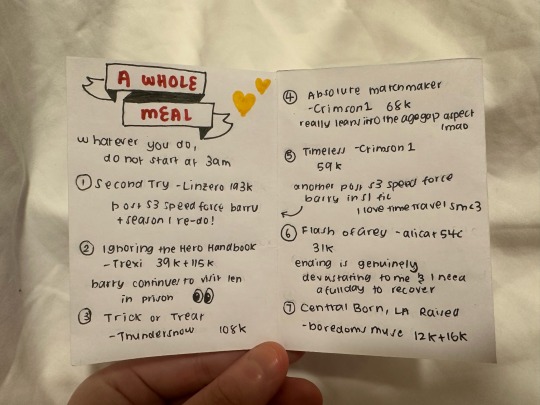 A WHOLE
MEAL
whatever you do,
do not start at 3am
① Second Try - Linzero 193k
post s3 speed force barry
+ season 1 re-do!
② Ignoring the Hero Handbook
- Trexi 39k + 115k
barry continues to visit len
in prison 👀
③ Trick or Treat
- Thundersnow 108k
④ Absolute matchmaker
- Crimson1 68k
really leans into the age gap aspect
lmao
⑤ Timeless - Crimson1
59k
another post s3 speed force
barry in s1 fic
I love time travel sm <3
⑥ Flash of Grey - alicat54c
31k
ending is genuinely
devastating to me & I need
a full day to recover
⑦ Central Born, LA Raised
- boredomsmuse 12k+16k